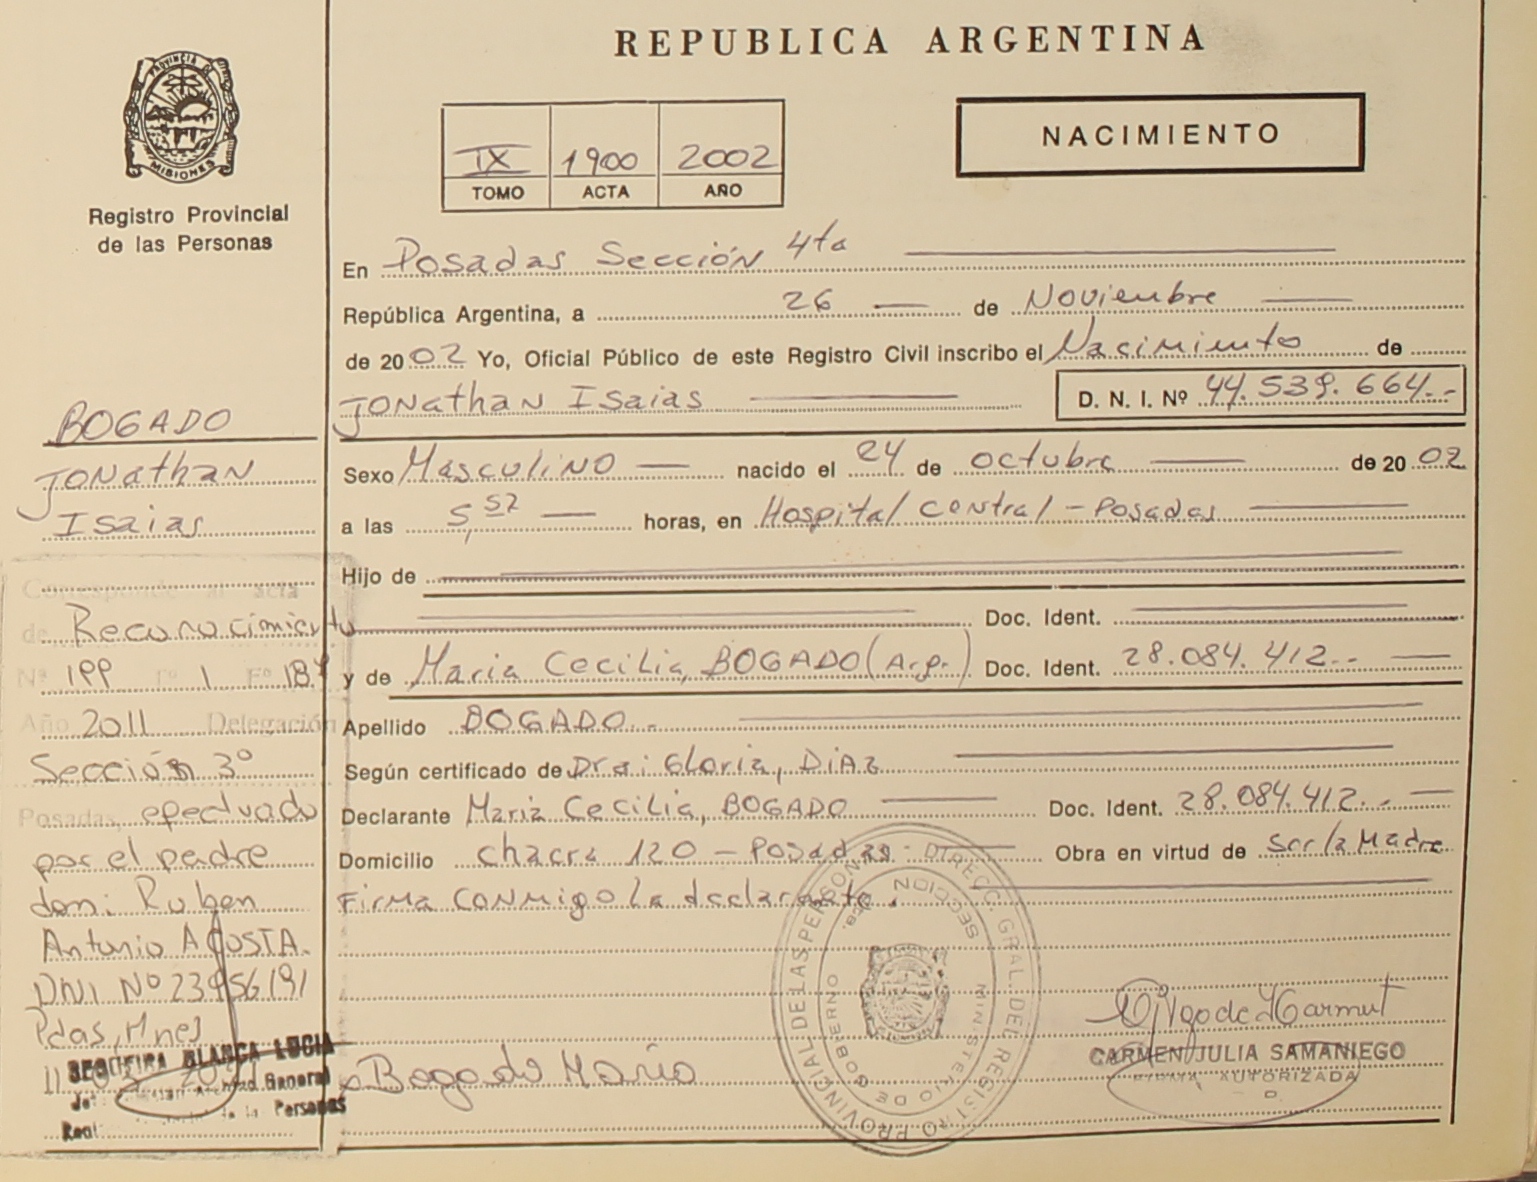 REPUBLICA ARGENTINA
PROVINCIA DE MISIONES
Registro Provincial
de las Personas
IX 1900 2002
TOMO ACTA AÑO
NACIMIENTO
En Posadas Sección 4ta
República Argentina, a 26 de Noviembre
de 2002 Yo, Oficial Público de este Registro Civil inscribo el Nacimiento de
Jonathan Isaias D. N. I. Nº 44.539.664.-
Sexo Masculino nacido el 24 de octubre de 2002
a las 5,52 horas, en Hospital Central - Posadas
Hijo de
Doc. Ident.
y de Maria Cecilia, BOGADO (Arg.) Doc. Ident. 28.084.412.-
Apellido BOGADO.-
Según certificado de Dra: Gloria, DIAZ
Declarante Maria Cecilia, BOGADO Doc. Ident. 28.084.412.-
Domicilio chacra 120 - Posadas- Obra en virtud de ser la Madre
Firma conmigo la declarante.
BOGADO
Jonathan
Isaias
Corresponde al acta
de Reconocimiento
Nº 199 Tº 1 Fº
Año 2011 Delegación
Sección 3º
Posadas, efectuado
por el padre
don: Ruben
Antonio ACOSTA.
DNI Nº
Pdas, Mnes
SEQUEIRA BLANCA LUCIA
General
de las Personas
Bogado Maria
DIRECC. GRAL. DEL REGISTRO PROVINCIAL DE LAS PERSONAS
MINISTERIO DE GOBIERNO
SECCION
CARMEN JULIA SAMANIEGO
FIRMA AUTORIZADA